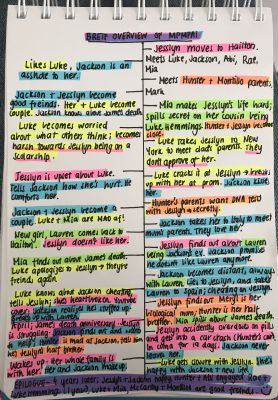 BRIEF OVERVIEW OF MPMPAI
Jesslyn moves to Hailton.
Meets Luke, Jackson, Abi, Rae,
Mia
Likes Luke, Jackson is an
asshole to her.
Meets Hunter + Montilio parents,
Mark
Jackson + Jesslyn become
good freinds. Her + Luke become
couple. Jackson knows about James death.
Mia makes Jesslyn's life hard;
spills secret on her cousin being
Luke Hemmings. Hunter + Jesslyn become
closer
Luke becomes worried
about what others think; becomes
harsh towards Jesslyn being on a
scholarship.
Luke takes Jesslyn to New
York to meet dad's parents. They
don't approve of her.
Jesslyn is upset about Luke.
Tells Jackson how she's hurt. He
comforts her.
Luke cracks it at Jesslyn → breaks
up with her at prom. Jackson
Hunter's parents want DNA test
with Jesslyn in secretly.
Jackson + Jesslyn become a
couple. Luke + Mia are MAD af!
Jackson takes her to Italy to meet
his parents. They love her.
New girl, Lauren comes back to
Hailton. Jesslyn doesn't like her.
Jesslyn finds out about Lauren
being Jackson's Ex. Jackson promises
he doesn't like Lauren anymore.
Mia finds out about James' death.
Luke apologizes to Jesslyn → they're
freinds again.
Jackson becomes distant, always
with Lauren. Lies to Jesslyn and takes
Lauren to Spain; cheating on Jesslyn.
Luke knows about Jackson cheating,
tells Jesslyn; she's heartbroken. Youtube
cover. Jackson realizes he stuffed up.
Break up with Lauren.
Jesslyn finds out Meryl is her
biological mom; Hunter is her half
brother. Mia spills about James' death.
April; James death anniversary. Jesslyn
is struggling. Jackson finds out and wants
to help. Hunter is mad at Jackson, tells him
he's Jesslyn half brother.
Jesslyn accidently overdoses on pills
and gets into a car crash (Hunter's car).
In coma for 10 days; Jackson never
leaves her.
Wakes up. Her whole family is
with her. Her and Jackson makeup.
Luke gets closure with Jesslyn. She's
happy with Jackson + new life.
EPILOGUE - 4 years later; Jesslyn + Jackson happy. Hunter + Abi engaged. Rae +
Luke Hemmings (1 year). Luke + Mia, McCarthy + Montilio are good freinds